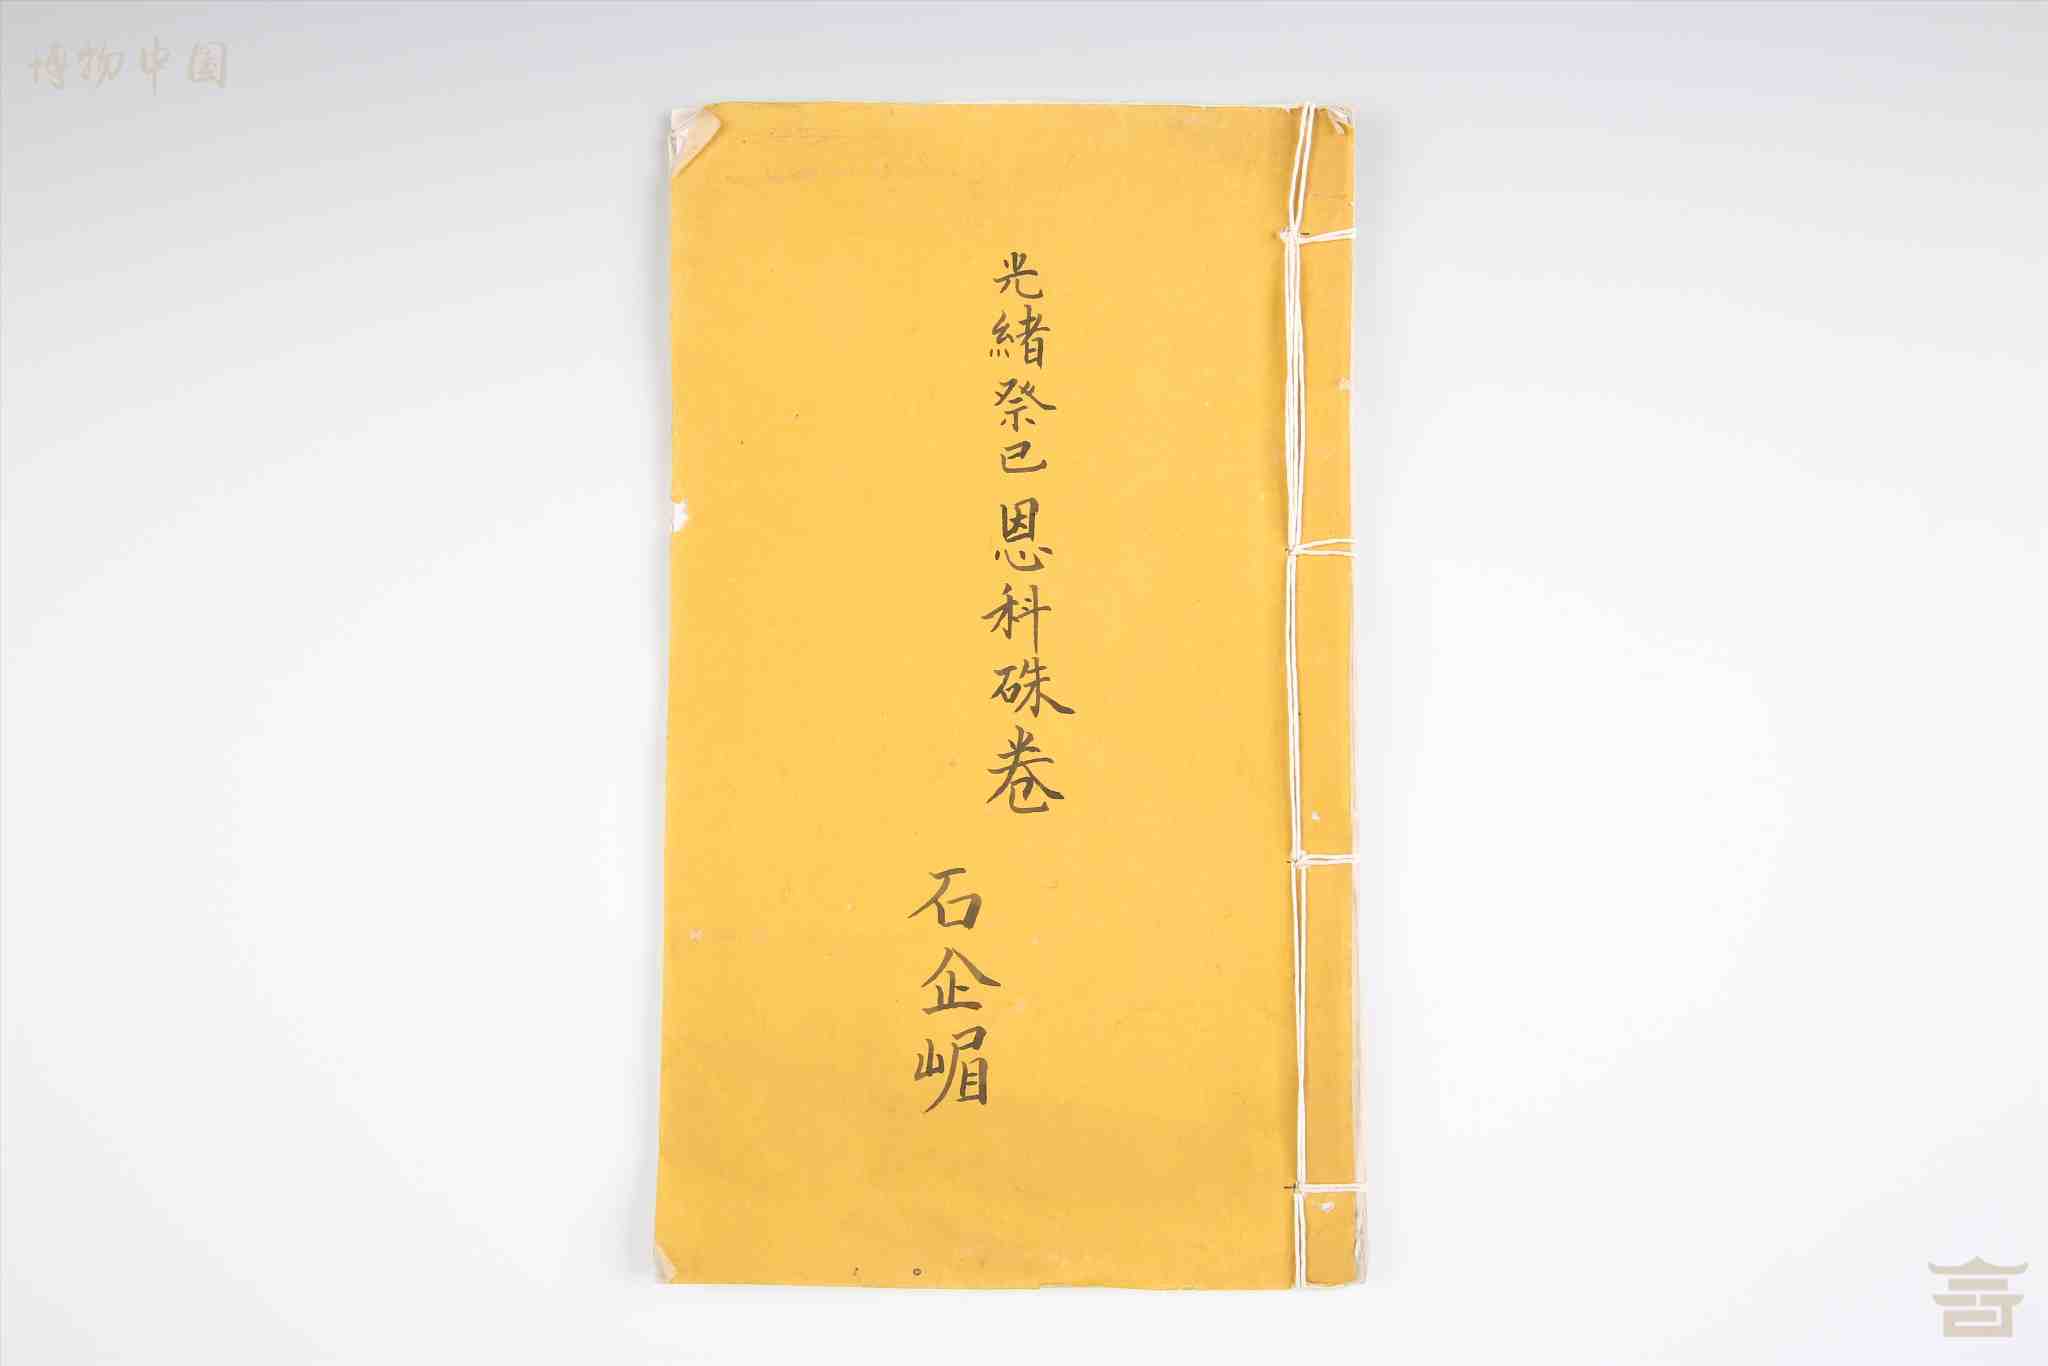 博物中国
光緒癸巳恩科硃卷
石企嵋